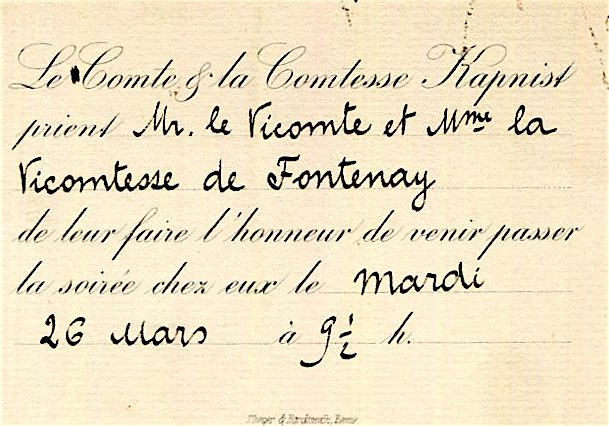 Le Comte & la Comtesse Kapnist
prient Mr. le Vicomte et Mme la
Vicomtesse de Fontenay
de leur faire l'honneur de venir passer
la soirée chez eux le Mardi
26 Mars à 9 1/2 h.
& Berne